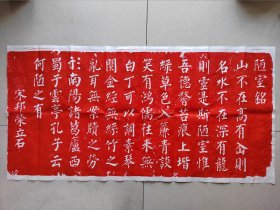 陋室銘
山不在高有仚則
名水不在深有龍
則靈是斯陋室惟
吾德馨苔痕上堦
綠草色入簾青談
笑有鴻儒往来無
白丁可以調素琴
閱金經無絲竹之
亂耳無案牘之勞
形南陽諸葛廬西
蜀子雲亭孔子云
何陋之有
宋邦榮立石